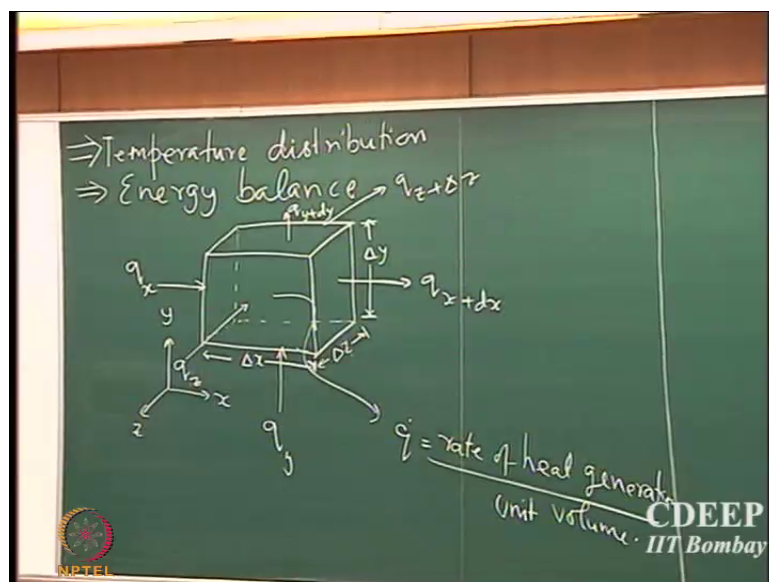 ⇒ Temperature distribution
⇒ Energy balance
q_z+Δz
q_y+dy
Δy
q_x
q_x+dx
y
Δx
Δz
q_z
x
z
q_y
q̇ = rate of heat generation
Unit volume.
CDEEP
IIT Bombay
NPTEL